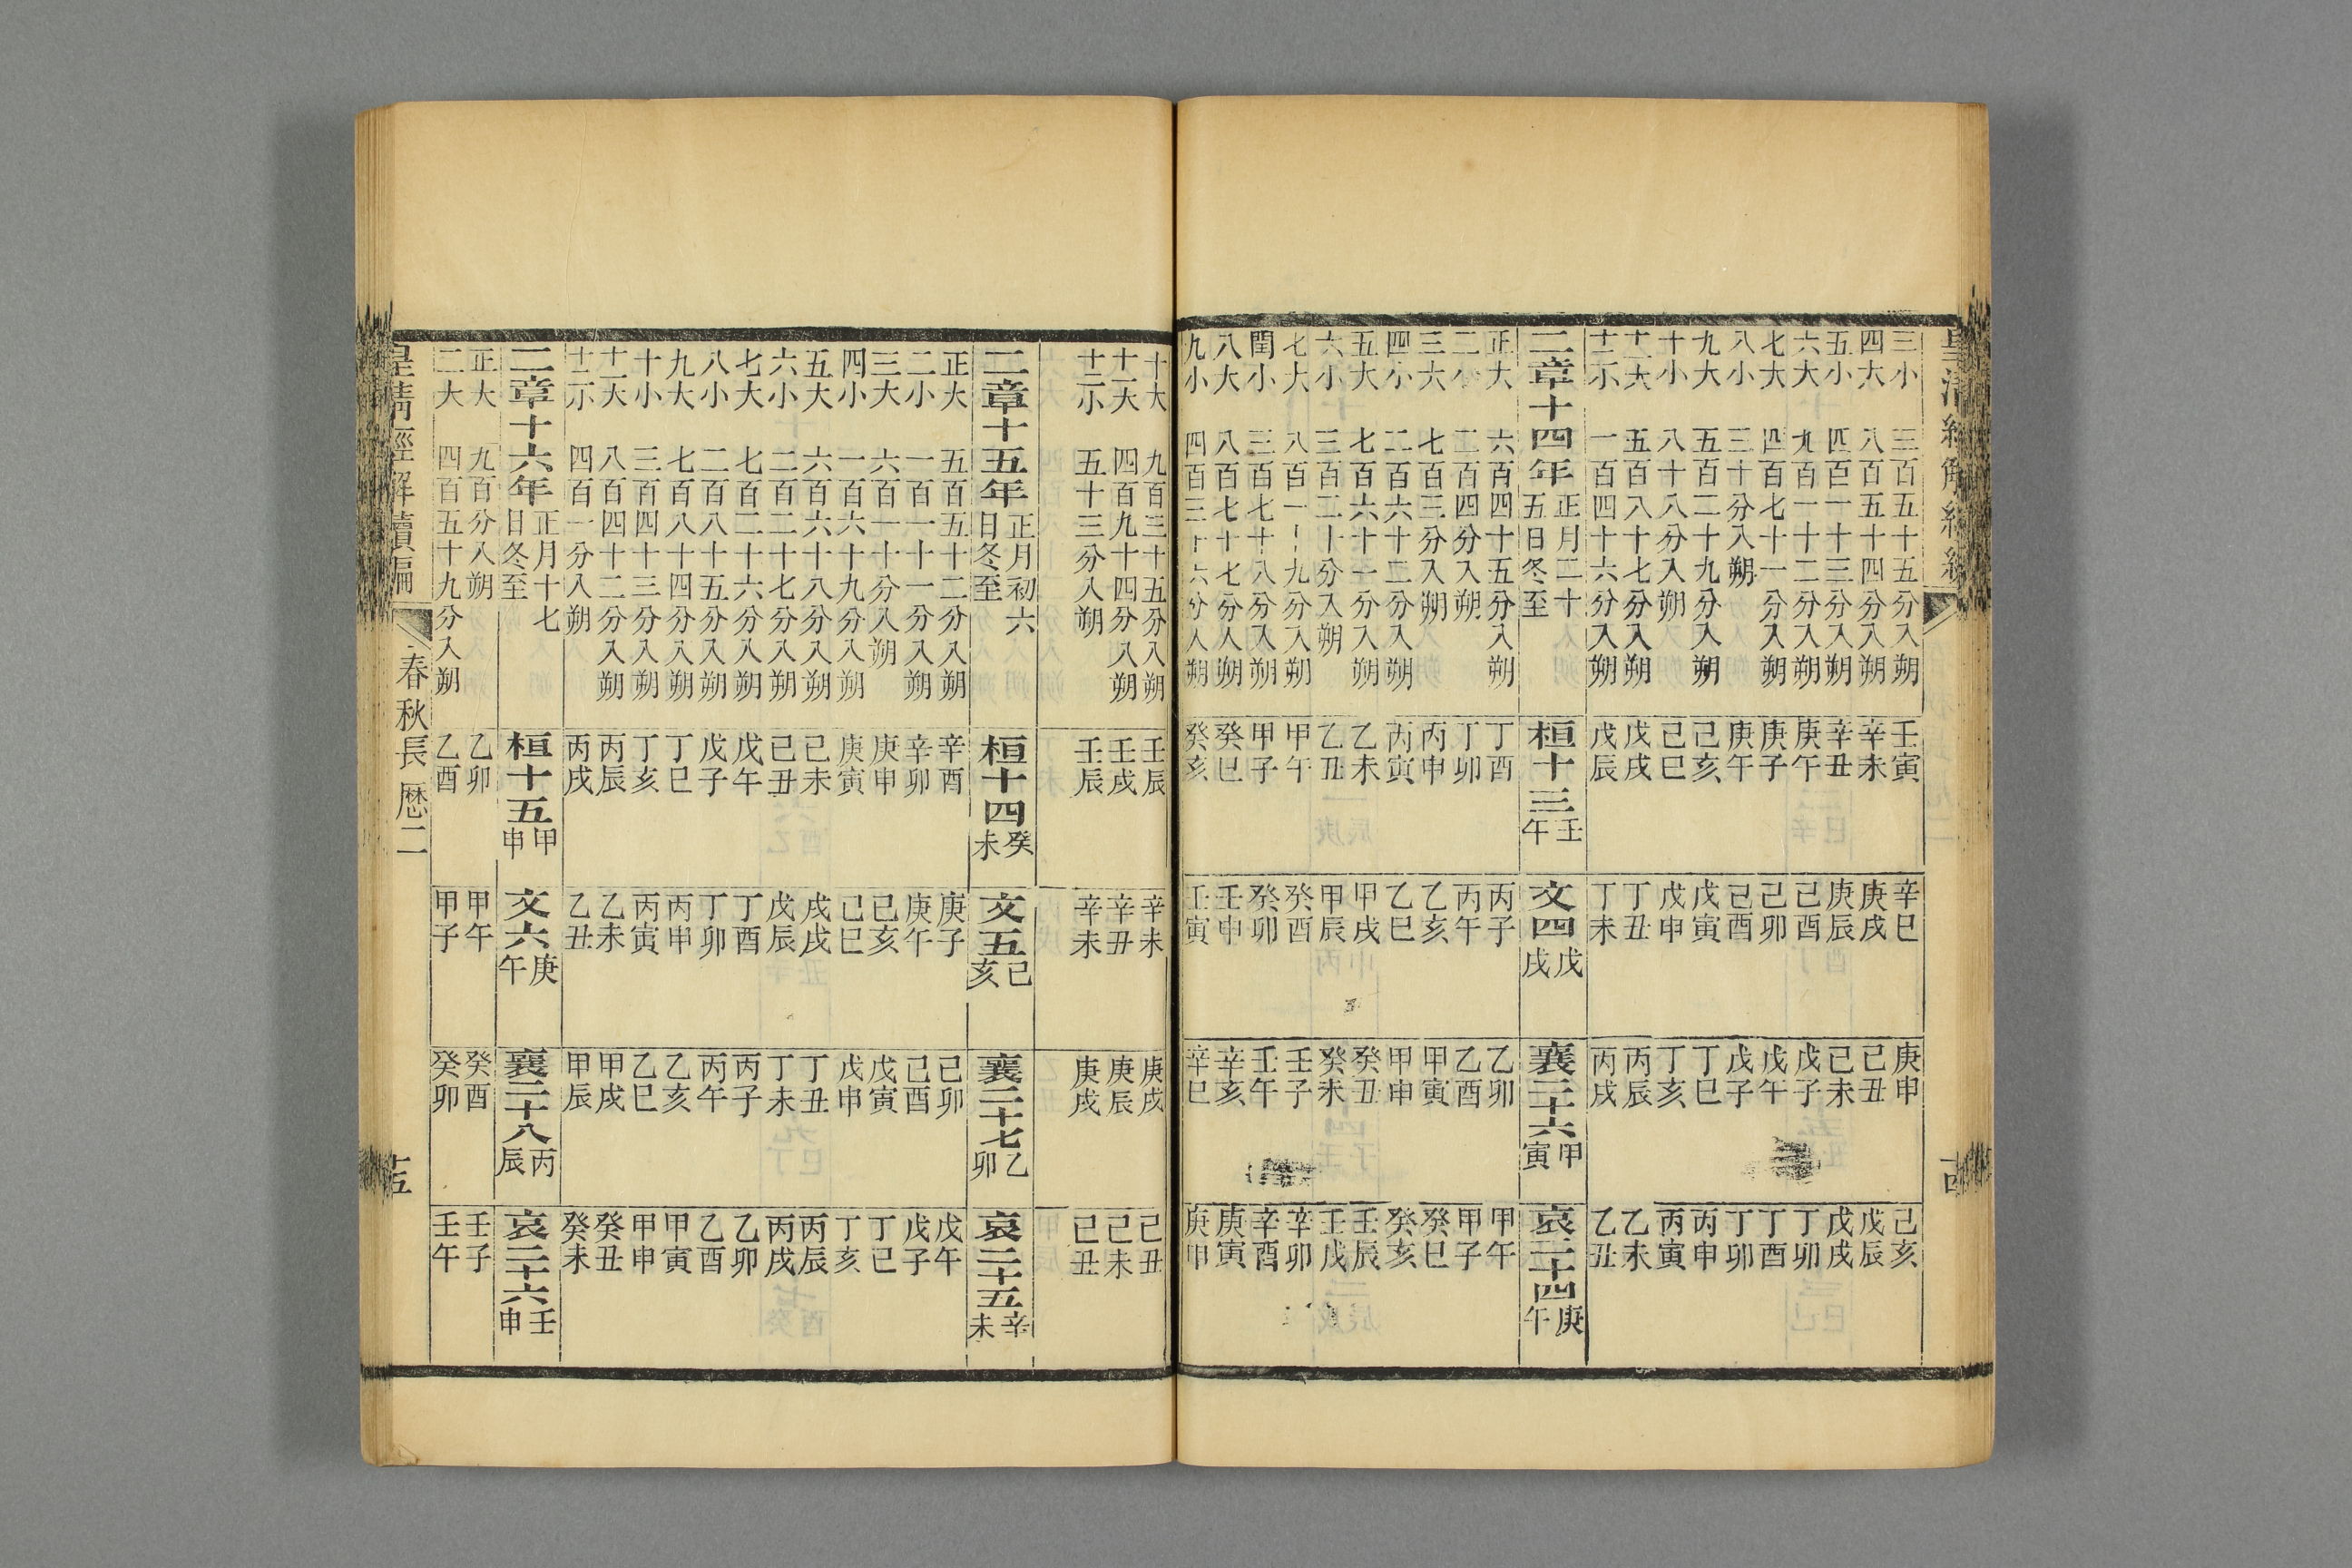 皇清經解續編
三小 三百五十五分入朔 壬寅 辛巳 庚申 己亥
四大 八百五十四分入朔 辛未 庚戌 己丑 戊辰
五小 四百一十三分入朔 辛丑 庚辰 己未 戊戌
六大 九百一十二分入朔 庚午 己酉 戊子 丁卯
七大 四百七十一分入朔 庚子 己卯 戊午 丁酉
八小 三十分入朔 庚午 己酉 戊子 丁卯
九大 五百二十九分入朔 己亥 戊寅 丁巳 丙申
十小 八十八分入朔 己巳 戊申 丁亥 丙寅
十一大 五百八十七分入朔 戊戌 丁丑 丙辰 乙未
十二小 一百四十六分入朔 戊辰 丁未 丙戌 乙丑
二章十四年 正月二十五日冬至 桓十三壬午 文四戊戌 襄二十六甲寅 哀二十四庚午
正大 六百四十五分入朔 丁酉 丙子 乙卯 甲午
二小 二百四分入朔 丁卯 丙午 乙酉 甲子
三大 七百三分入朔 丙申 乙亥 甲寅 癸巳
四小 二百六十二分入朔 丙寅 乙巳 甲申 癸亥
五大 七百六十一分入朔 乙未 甲戌 癸丑 壬辰
六小 三百二十分入朔 乙丑 甲辰 癸未 壬戌
七大 八百一十九分入朔 甲午 癸酉 壬子 辛卯
閏小 三百七十八分入朔 甲子 癸卯 壬午 辛酉
八大 八百七十七分入朔 癸巳 壬申 辛亥 庚寅
九小 四百三十六分入朔 癸亥 壬寅 辛巳 庚申
十大 九百三十五分入朔 壬辰 辛未 庚戌 己丑
十一大 四百九十四分入朔 壬戌 辛丑 庚辰 己未
十二小 五十三分入朔 壬辰 辛未 庚戌 己丑
二章十五年 正月初六日冬至 桓十四癸未 文五己亥 襄二十七乙卯 哀二十五辛未
正大 五百五十二分入朔 辛酉 庚子 己卯 戊午
二小 一百一十一分入朔 辛卯 庚午 己酉 戊子
三大 六百一十分入朔 庚申 己亥 戊寅 丁巳
四小 一百六十九分入朔 庚寅 己巳 戊申 丁亥
五大 六百六十八分入朔 己未 戊戌 丁丑 丙辰
六小 二百二十七分入朔 己丑 戊辰 丁未 丙戌
七大 七百二十六分入朔 戊午 丁酉 丙子 乙卯
八小 二百八十五分入朔 戊子 丁卯 丙午 乙酉
九大 七百八十四分入朔 丁巳 丙申 乙亥 甲寅
十小 三百四十三分入朔 丁亥 丙寅 乙巳 甲申
十一大 八百四十二分入朔 丙辰 乙未 甲戌 癸丑
十二小 四百一分入朔 丙戌 乙丑 甲辰 癸未
二章十六年 正月十七日冬至 桓十五甲申 文六庚午 襄二十八丙辰 哀二十六壬申
正大 九百分入朔 乙卯 甲午 癸酉 壬子
二大 四百五十九分入朔 乙酉 甲子 癸卯 壬午
皇清經解續編 春秋長厯二 十五